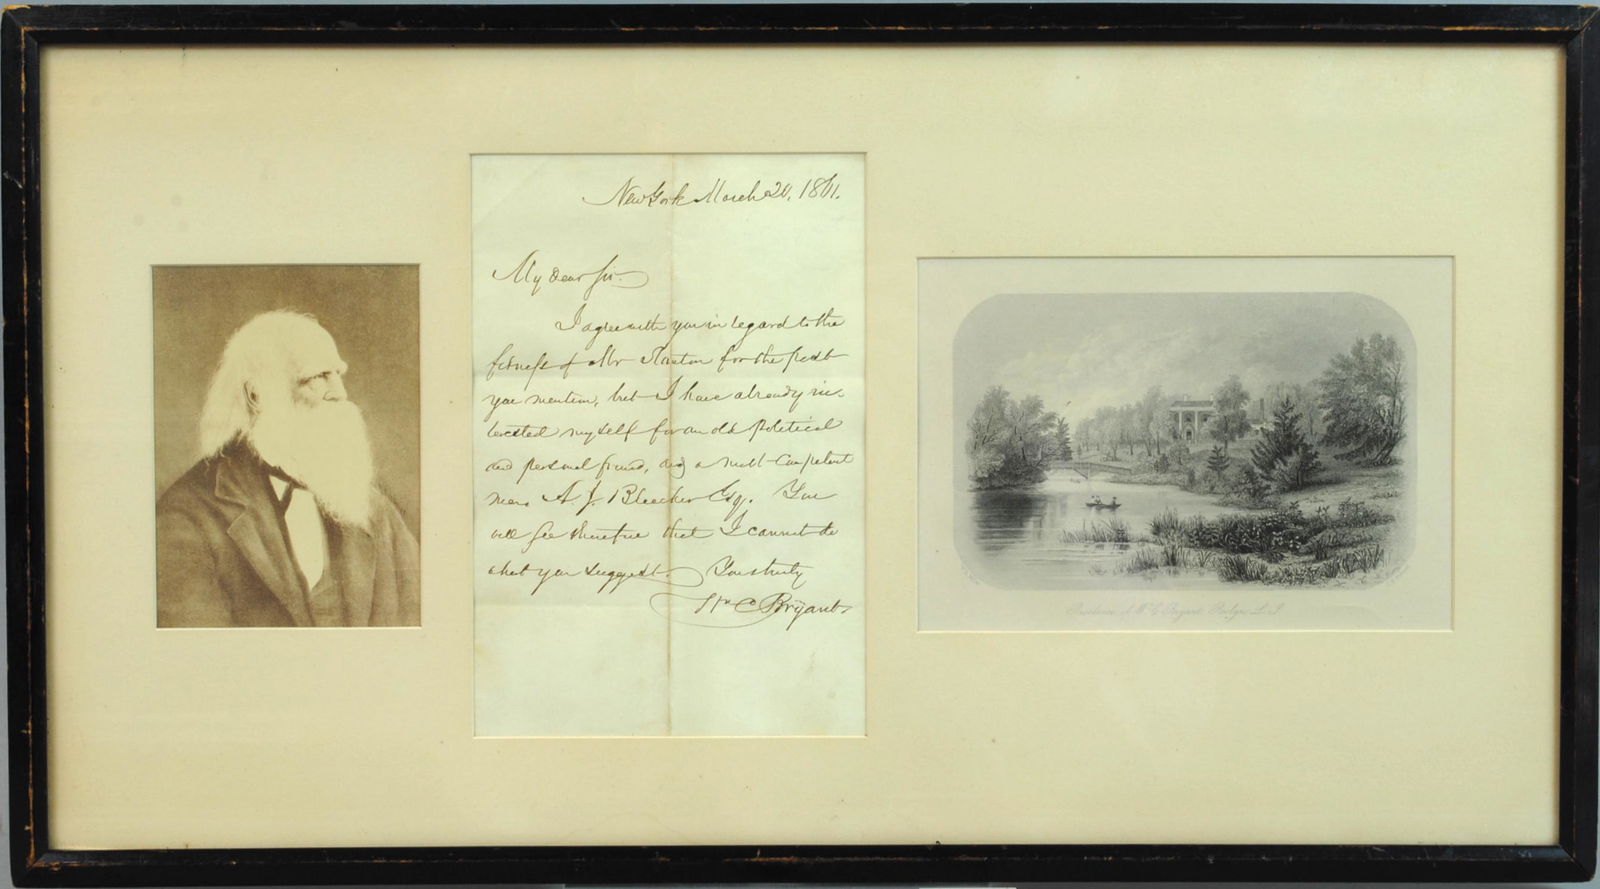 New York March 20, 1861.
My dear Sir.
I agree with you in regard to the
fitness of Mr for the post
you mention, but I have already in-
terested myself for an old political
and personal friend, and a most competent
man A. J. Bleecker Esq. You
will see therefore that I cannot do
what you suggest. Yours truly
Wm C Bryant.
Residence of W. C. Bryant Roslyn L.I.